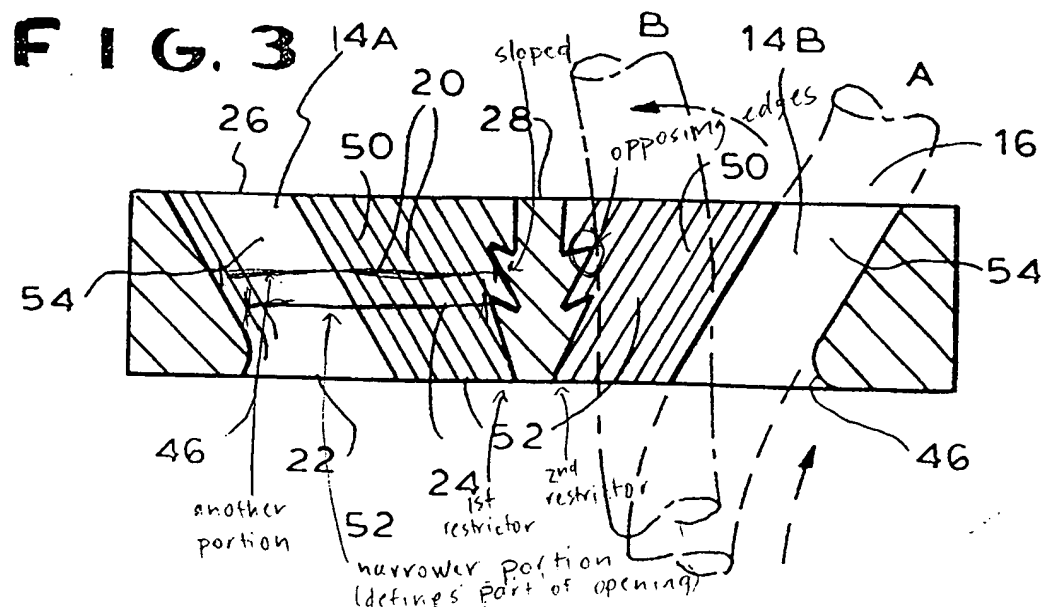 FIG. 3
14A
sloped
B
14B
A
26
50
20
28
opposing edges
50
16
54
54
46
22
24
52
46
another
portion
52
1st
restrictor
2nd
restrictor
narrower portion
(defines part of opening)